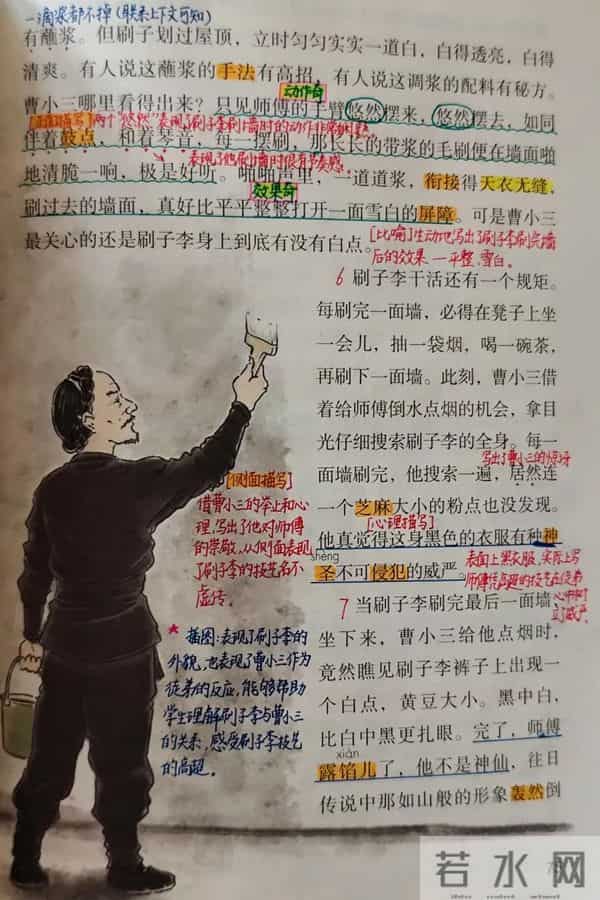 一滴浆都不掉(联系上下文可知)
有蘸浆。但刷子划过屋顶，立时匀匀实实一道白，白得透亮，白得
清爽。有人说这蘸浆的手法有高招，有人说这调浆的配料有秘方。
动作奇
曹小三哪里看得出来？只见师傅的手臂悠然摆来，悠然摆去，如同
两个"悠然"表现了刷子李刷墙时的动作非常娴熟
伴着鼓点，和着琴音，每一摆刷，那长长的带浆的毛刷便在墙面啪
表现了他刷墙时很有节奏感
地清脆一响，极是好听。啪啪声里，一道道浆，衔接得天衣无缝，
效果奇
刷过去的墙面，真好比平平整整打开一面雪白的屏障。可是曹小三
最关心的还是刷子李身上到底有没有白点。
[比喻]生动地写出了刷子李刷完墙
后的效果—平整、雪白。
6 刷子李干活还有一个规矩。
每刷完一面墙，必得在凳子上坐
一会儿，抽一袋烟，喝一碗茶，
再刷下一面墙。此刻，曹小三借
着给师傅倒水点烟的机会，拿目
光仔细搜索刷子李的全身。每一
写出了曹小三的惊讶
面墙刷完，他搜索一遍，居然连
一个芝麻大小的粉点也没发现。
[心理描写]
他真觉得这身黑色的衣服有种神
shèng
圣不可侵犯的威严。
表面上写衣服，实际上写
师傅高超的技艺在徒弟
心中树
立了威严
[侧面描写]
借曹小三的举止和心
理，写出了他对师傅
的崇敬，从侧面表现
了刷子李的技艺名不
虚传。
7 当刷子李刷完最后一面墙，
坐下来，曹小三给他点烟时，
竟然瞧见刷子李裤子上出现一
个白点，黄豆大小。黑中白，
比白中黑更扎眼。完了，师傅
xiàn
露馅儿了，他不是神仙，往日
传说中那如山般的形象轰然倒
★ 插图：表现了刷子李的
外貌，也表现了曹小三作为
徒弟的反应，能够帮助
学生理解刷子李与曹小三
的关系，感受刷子李技艺
的高超。
若水网